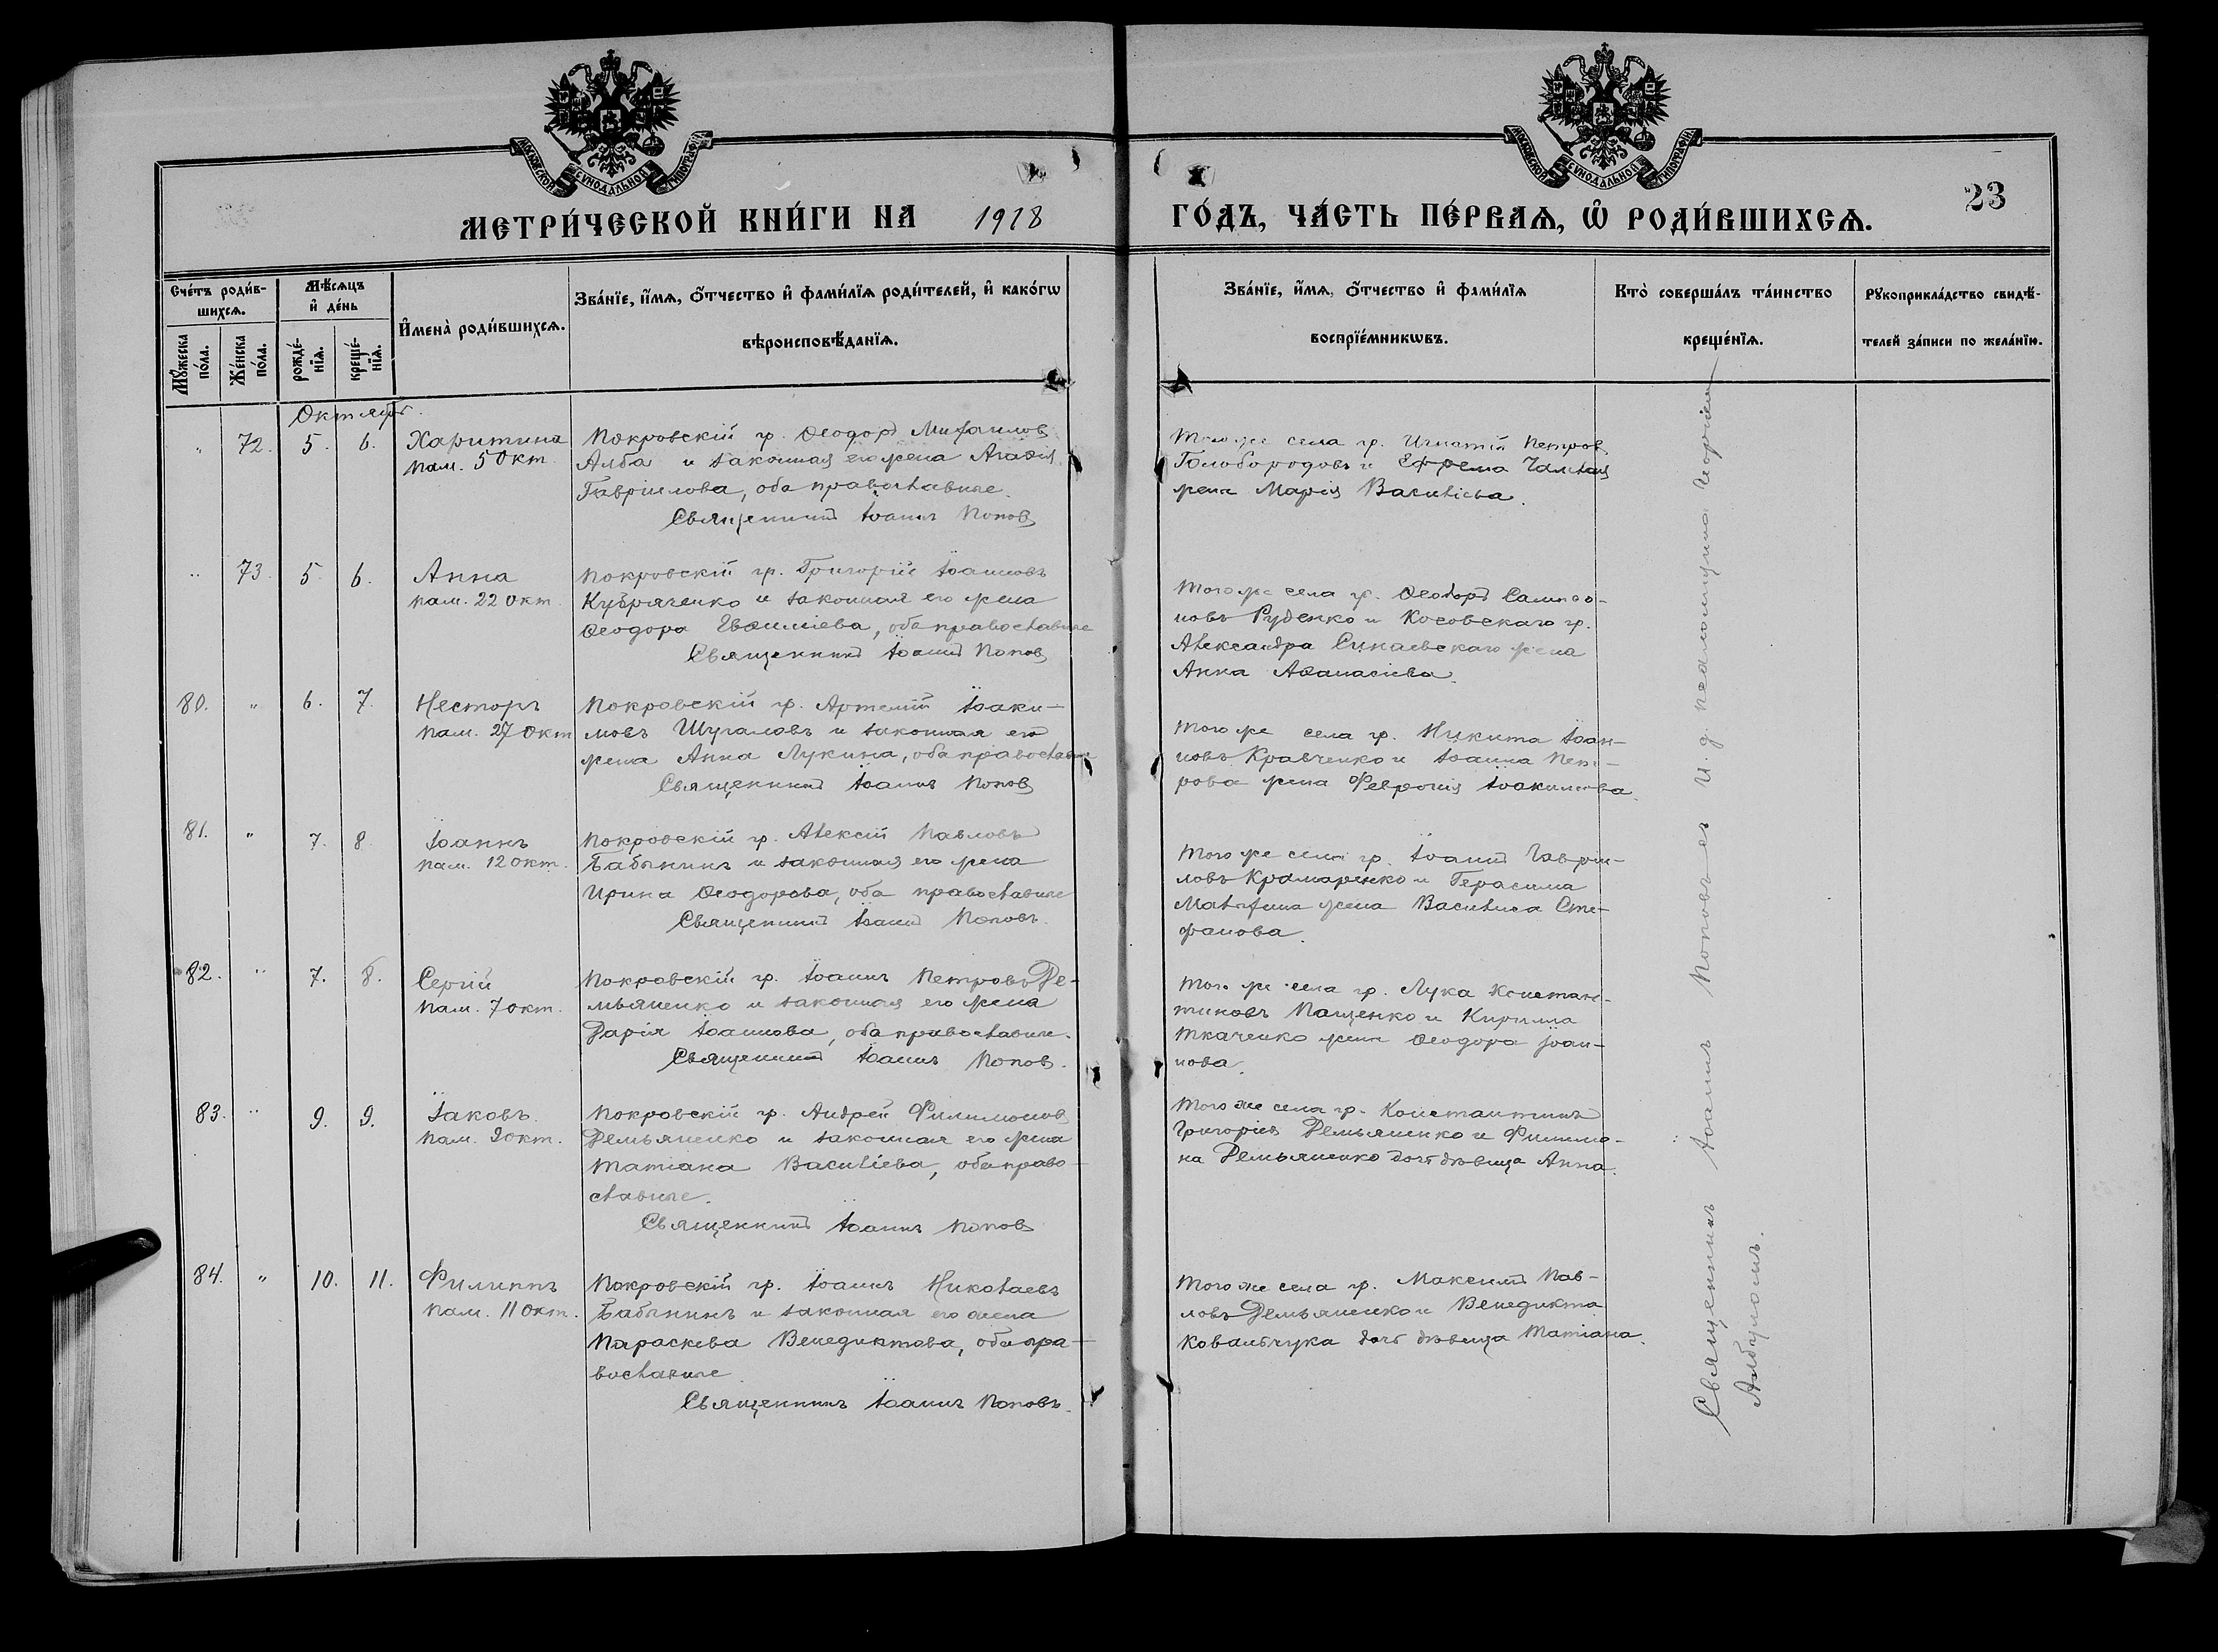 МОСКОВСКОЙ СѴНОДАЛЬНОЙ ТИПОГРАФІИ
МОСКОВСКОЙ СѴНОДАЛЬНОЙ ТИПОГРАФІИ
23
МЕТРИ́ЧЕСКОЙ КНИ́ГИ НА 1918 ГО́ДЪ, ЧА́СТЬ ПЕ́РВАѦ, Ѡ҆ РОДИ́ВШИХСѦ.
Сче́тъ роди́в-
шихсѧ.
Мꙋ́жеска по́ла.
Же́нска по́ла.
Мѣ́сѧцъ
и҆ де́нь
рожде́-
нїѧ.
креще́-
нїѧ.
И҆мена̀ роди́вшихсѧ.
Зва́нїе, и҆́мѧ, ѻ҆́тчество и҆ фами́лїѧ роди́телей, и҆ како́гѡ
вѣроисповѣ́данїѧ.
Зва́нїе, и҆́мѧ, ѻ҆́тчество и҆ фами́лїѧ
воспрїе́мникѡвъ.
Кто̀ соверша́лъ та́инство
креще́нїѧ.
Рꙋкоприкла́дство свидѣ́-
телей за́писи по жела́нїю.
Октябрь.
" 72. 5. 6. Харитина
пам. 5 Окт
Покровскій гр. Ѳеодоръ Михаиловъ
Алба и законная его жена Агаѳія
Гавріилова, оба православные.
Священникъ Іоаннъ Поповъ
Того же села гр. Игнатій Петровъ
Голобородовъ и Ефрема
жена Марія Васильева.
" 73. 5. 6. Анна
пам. 22 окт.
Покровскій гр. Григорій Іоанновъ
Кудряченко и законная его жена
Ѳеодора Евѳиміева, оба православные
Священникъ Іоаннъ Поповъ
Того же села гр. Ѳеодоръ Сампсо-
новъ Руденко и Косовскаго гр.
Александра жена
Анна Аѳанасіева.
80. " 6. 7. Несторъ
пам. 27 Окт
Покровскій гр. Артемій Іоаки-
мовъ Шугаловъ и законная его
жена Анна Лукина, оба православные
Священникъ Іоаннъ Поповъ
Того же села гр. Никита Іоан-
новъ Кравченко и Іоанна Пет-
рова жена Февронія Іоакимова.
81. " 7. 8. Іоаннъ
пам. 12 окт.
Покровскій гр. Алексій Павловъ
Бабынинъ и законная его жена
Ирина Ѳеодорова, оба православные
Священникъ Іоаннъ Поповъ.
Того же села гр. Іоаннъ Гаврии-
ловъ Крамаренко и Герасима
жена Василиса Сте-
фанова.
82. " 7. 8. Сергій
пам. 7 окт.
Покровскій гр. Іоаннъ Петровъ Де-
мьяненко и законная его жена
Дарія Іоаннова, оба православные.
Священникъ Іоаннъ Поповъ.
Того же села гр. Лука Констан-
тиновъ Пащенко и Кирилла
Ткаченко жена Ѳеодора Іоан-
нова.
83. " 9. 9. Іаковъ.
пам. 9 окт.
Покровскій гр. Андрей Филимоновъ
Демьяненко и законная его жена
Татіана Васильева, оба право-
славные.
Священникъ Іоаннъ Поповъ
Того же села гр. Константинъ
Григоріевъ Демьяненко и Филимо-
на Демьяненко дочь дѣвица Анна.
84. " 10. 11. Филиппъ
пам. 11 окт.
Покровскій гр. Іоаннъ Николаевъ
Бабынинъ и законная его жена
Параскева Венедиктова, оба пра-
вославные.
Священникъ Іоаннъ Поповъ.
Того же села гр. Максимъ Пав-
ловъ Демьяненко и Венедикта
Ковальчука дочь дѣвица Татіана.
Священникъ Іоаннъ Поповъ съ И. д. псаломщика Георгіемъ